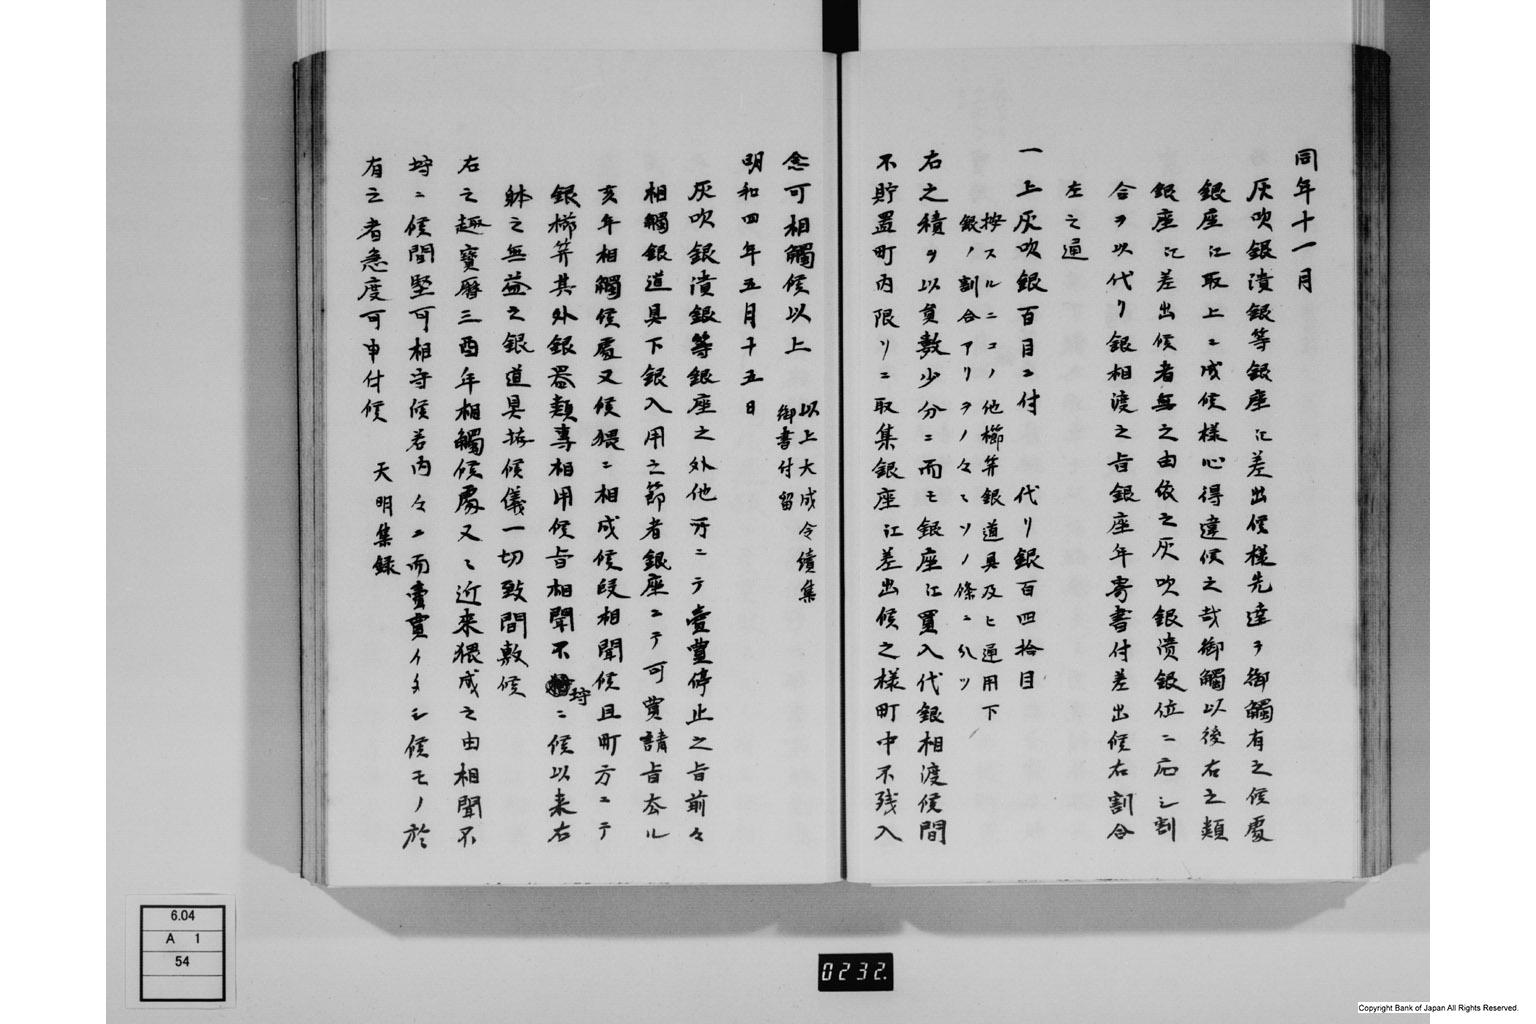 同年十一月
灰吹銀潰銀等銀座江差出候様先達ヲ御觸有之候處
銀座江取上ニ成候様心得違候之哉御觸以後右之類
銀座江差出候者無之由依之灰吹銀潰銀位ニ応シ割
合ヲ以代リ銀相渡之旨銀座年寄書付差出候右割合
左之通
一上灰吹銀百目ニ付　代リ銀百四拾目
按スルニコノ他櫛笄銀道具及ヒ通用下
銀ノ割合アリヲノ々ミソノ條ニ
右之積ヲ以員數少分ニ而モ銀座江買入代銀相渡候間
不貯置町内限リニ取集銀座江差出候之様町中不残入
念可相觸候以上
以上大成令續集
御書付留
明和四年五月十五日
灰吹銀潰銀等銀座之外他所ニテ賣買停止之旨前々
相觸銀道具下銀入用之節者銀座ニテ可買請旨去ル
亥年相觸候處又候猥ニ相成候段相聞候且町方ニテ
銀櫛笄其外銀器類專相用候旨相聞不埒ニ候以来右
躰之無益之銀道具拵候儀一切致間敷候
右之趣寶曆三酉年相觸候處又々近来猥成之由相聞不
埒ニ候間堅可相守候若内々ニ而賣買イタシ候モノ於
有之者急度可申付候
天明集録
6.04
A 1
54
0232.
Copyright Bank of Japan All Rights Reserved.